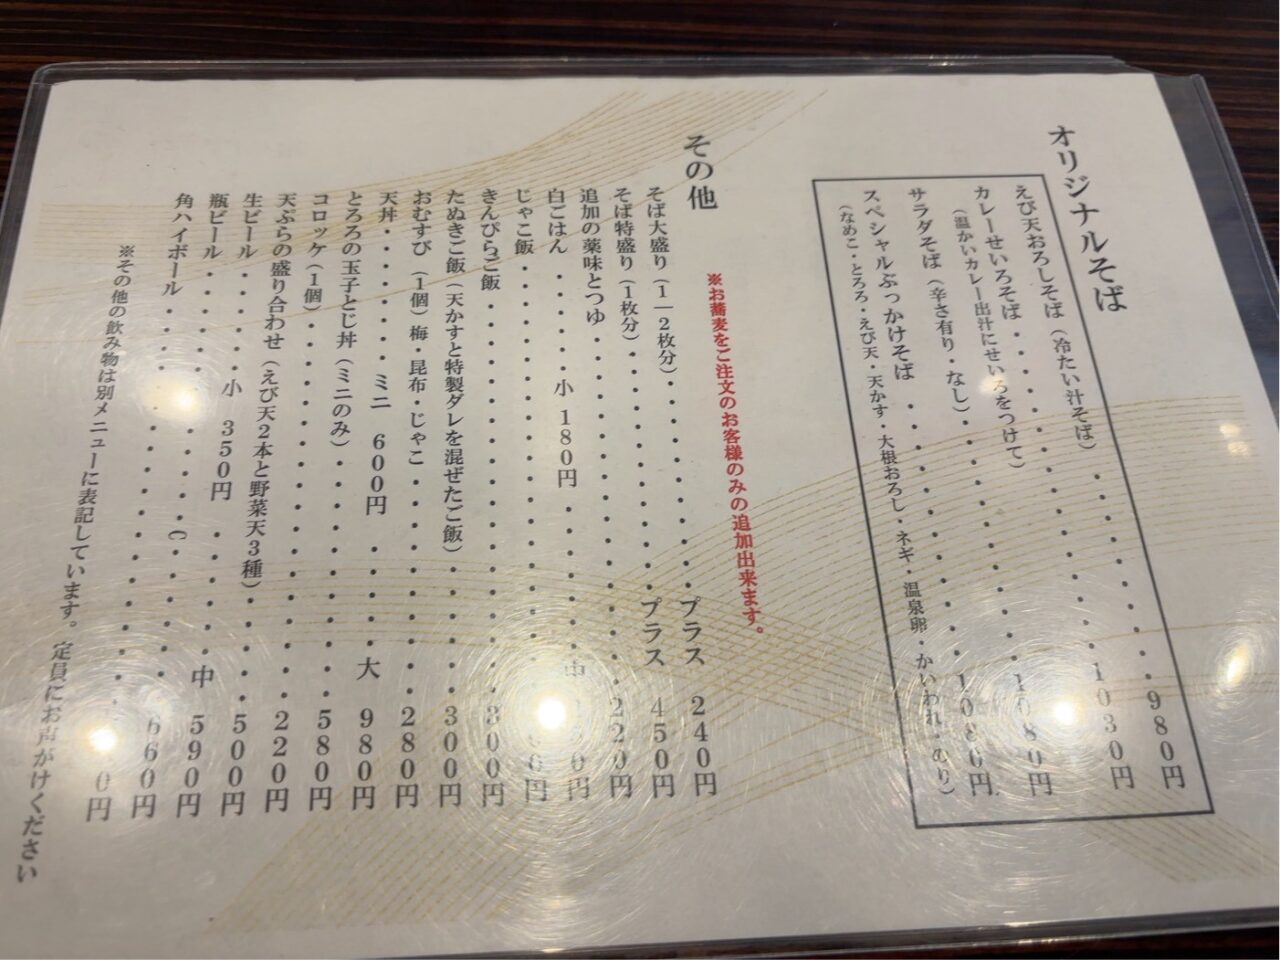 オリジナルそば
えび天おろしそば（冷たい汁そば）・・・・・・980円
カレーせいろそば・・・・・・・・1030円
（温かいカレー出汁にせいろをつけて）
サラダそば（辛さ有り・なし）・・・・・・1080円
スペシャルぶっかけそば・・・・・・1080円
（なめこ・とろろ・えび天・天かす・大根おろし・ネギ・温泉卵・かいわれ・のり）
その他
※お蕎麦をご注文のお客様のみの追加出来ます。
そば大盛り（1－2枚分）・・・・・・プラス 240円
そば特盛り（1枚分）・・・・・・プラス 450円
追加の薬味とつゆ・・・・・・・・220円
白ごはん・・・・・小 180円・・・・・中 円
じゃこ飯・・・・・・・・円
きんぴらご飯・・・・・・・・300円
たぬきご飯（天かすと特製ダレを混ぜたご飯）・・・・300円
おむすび（1個）梅・昆布・じゃこ・・・・・・280円
天丼・・・・・・ミニ 600円・・・・・大 980円
とろろの玉子とじ丼（ミニのみ）・・・・・・580円
コロッケ（1個）・・・・・・・・220円
天ぷらの盛り合わせ（えび天2本と野菜天3種）・・・・500円
生ビール・・・・・小 350円・・・・・中 590円
瓶ビール・・・・・・・・660円
角ハイボール・・・・・・・・0円
※その他の飲み物は別メニューに表記しています。定員にお声がけください